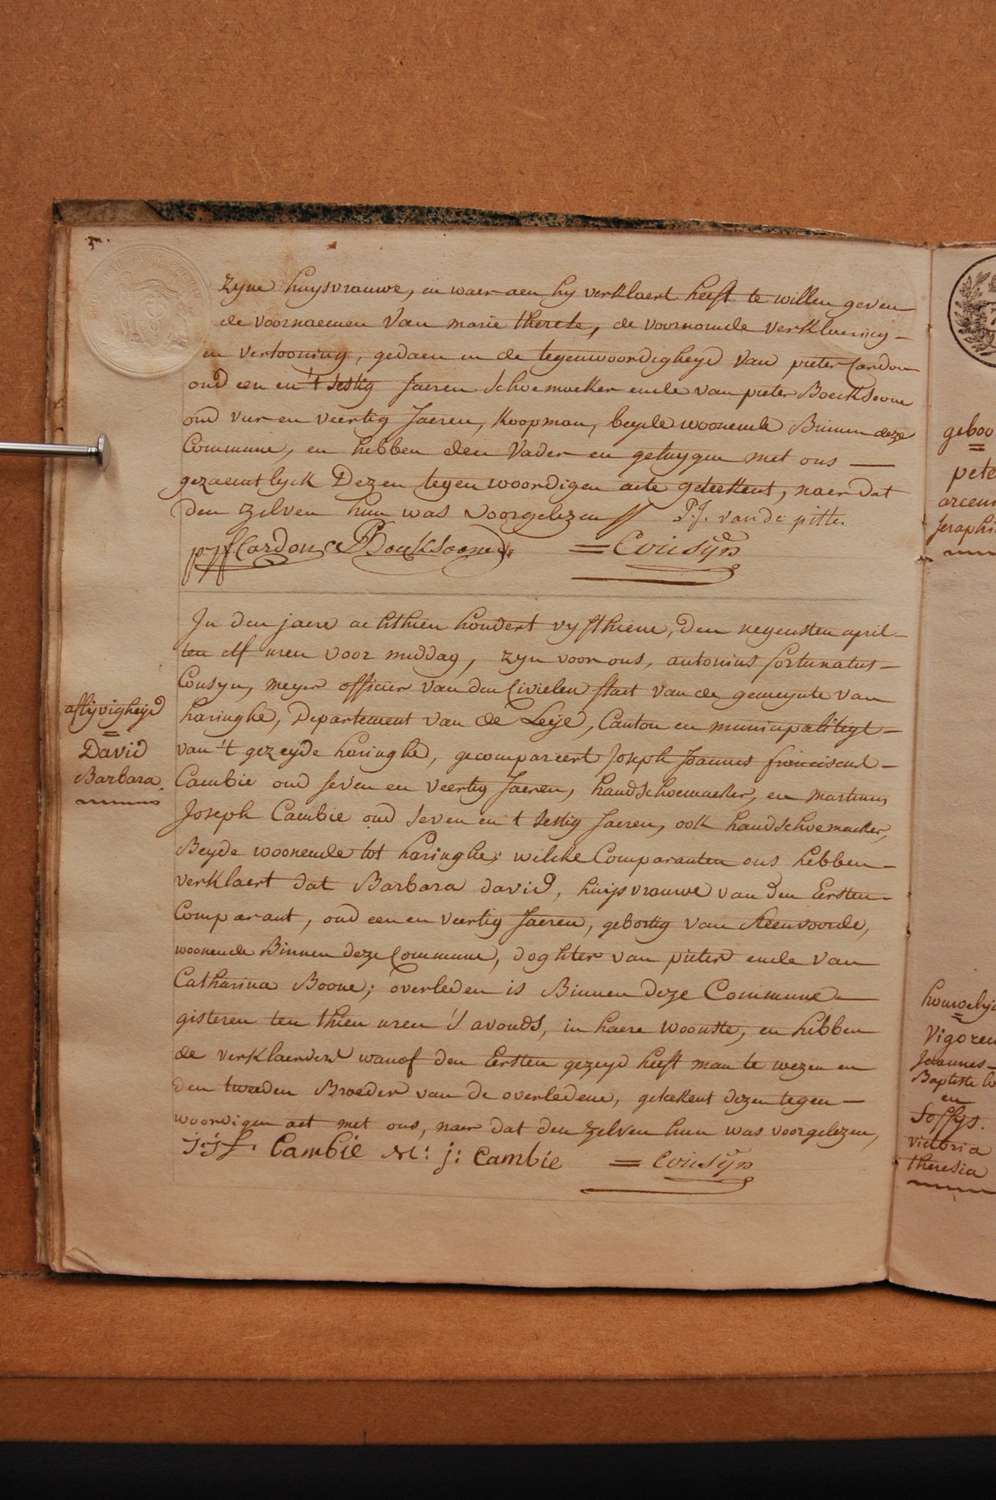 5.
zyne huysvrouwe, en waer aen hy verklaert heeft te willen geven
de voornaemen van marie therese, de voornomde verklaering –
en vertooning, gedaen in de tegenwoordigheyd van pieter Cardon
oud een en 't sestig Jaeren Schoemaeker ende van pieter Boecksoone
oud vier en veertig Jaeren, koopman, beyde woonende Binnen deze
Commune, en hebben den Vader en getuygen met ons —
gezaementlyck Dezen tegenwoordigen acte geteekent, naer dat
den zelven hun was voorgelezen // P.J. vande pitte.
Cardon Boecksoone = Cousÿn
In den jaere achthien hondert vyfthiene, den negensten april –
ten elf uren voor middag, zyn voor ons, antonius fortunatus –
Cousyn, meyer officier van den Civielen staet van de gemeynte van
haringhe, Departement van de Leije, Canton en municipaliteyt –
van 't gezeyde haringhe, gecompareert Joseph Joannes franciscus –
Cambie oud seven en veertig Jaeren, handschoemaeker, en martinus
Joseph Cambie oud seven en t sestig Jaeren, ook handschoemaeker,
Beyde woonende tot haringhe; wilcke Comparanten ons hebben –
verklaert dat Barbara david, huijsvrouwe van den Ersten –
Comparant, oud een en veertig Jaeren, gebortig van Steenvoorde,
woonende Binnen deze Commune, doghter van pieter ende van
Catharina Boone; overleden is Binnen deze Commune –
gisteren ten thien uren 's avonds, in haere woonste, en hebben
de verklaerders wanof den Ersten gezeyd heeft man te wezen en
den tweeden Broeder van de overledene, geteekent dezen tegen –
woordigen act met ons, naer dat den zelven hun was voorgelezen,
J: j f. Cambie M: j: Cambie = Cousÿn
aflyvigheyd
=
David
Barbara.
geboo
=
pete
arcen
seraphi
houwelyk
=
Vigoreu
Joannes –
Baptiste
en
Soffys.
victoria
theresia